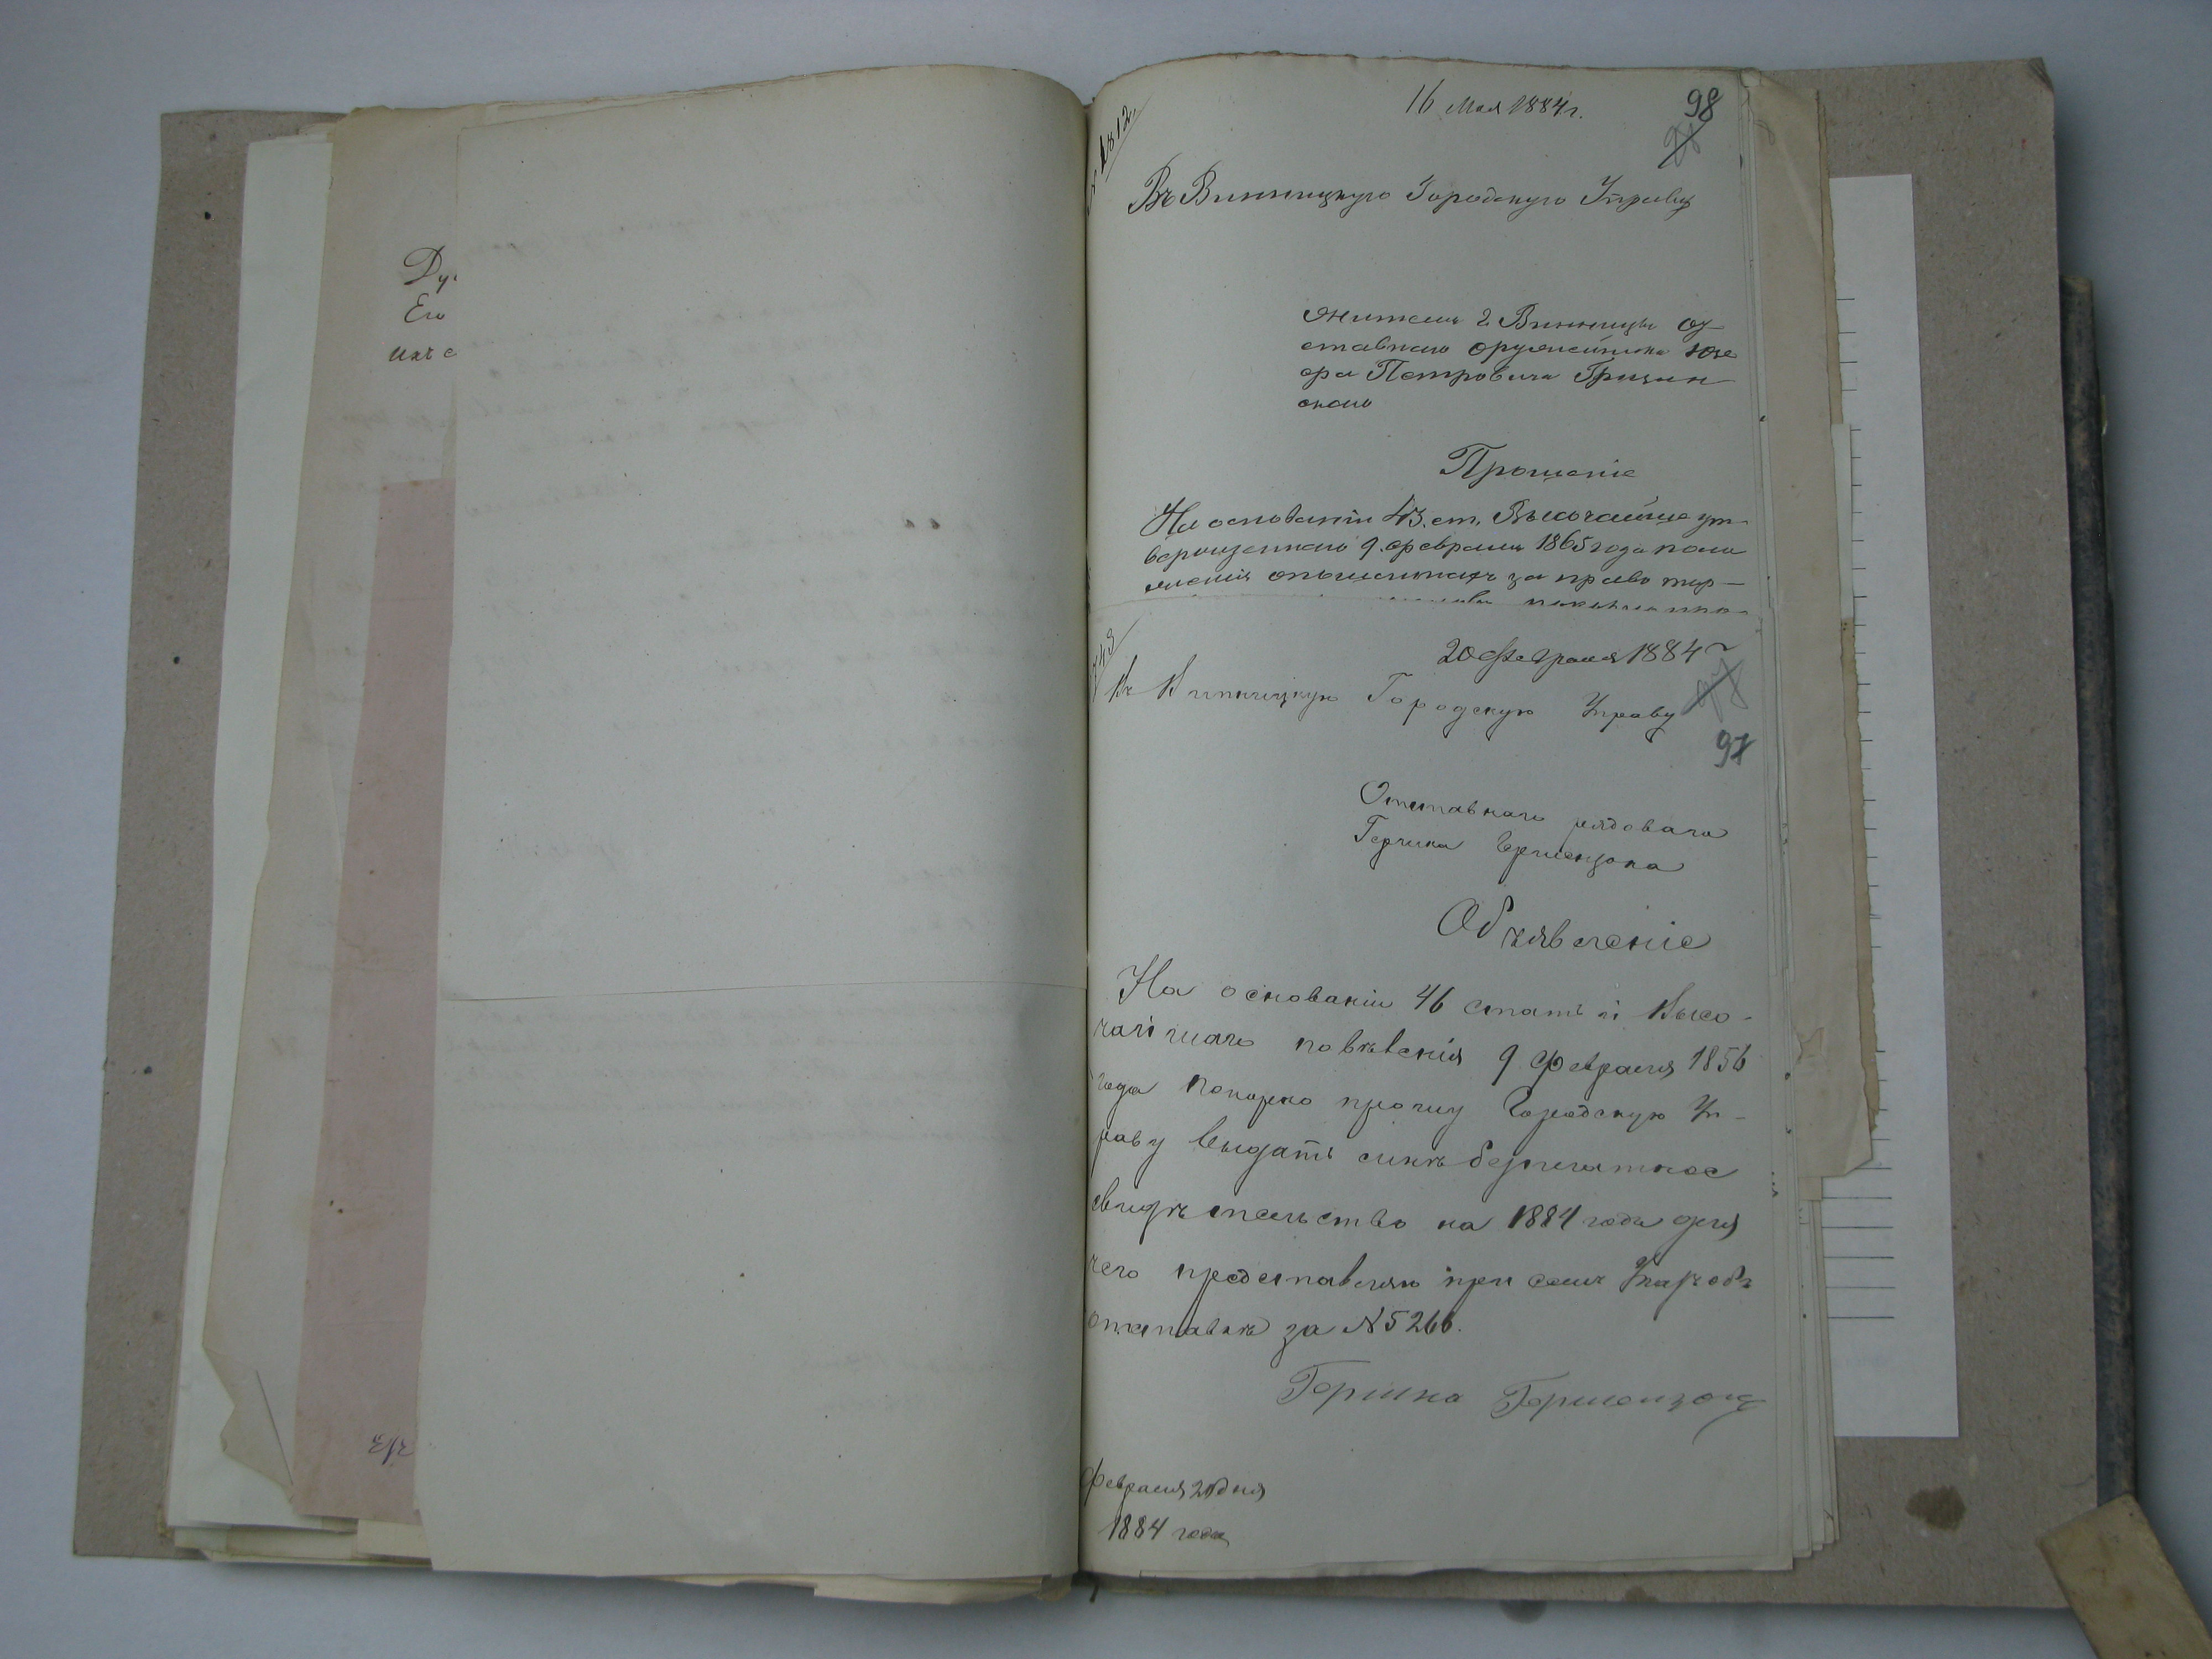 Ду
Его
ихъ с
1812.
16 Мая 1884 г.
98
Въ Винницкую Городскую Управу
Жителя г. Винницы От-
ставнаго оружейника Юзе
фа Петровича Грицин-
скаго
Прошеніе
На основаніи 43. ст. Высочайше ут-
вержденнаго 9. февраля 1865 года поло
женія опошлинахъ за право тор-
20 Февраля 1884 г
Въ Винницкую Городскую Управу
97
Отставнаго рядоваго
Гершка Гершензона
Объявленіе
На основаніи 46 статьи Высо-
чайшаго повѣленія 9 Февраля 1856
года покорно прошу Городскую Уп-
раву выдать мнѣ безплатное
свидѣтельство на 1884 года для
чего представляю при семъ Указъ объ
отставкѣ за №5266.
Гершко Гершензонъ
Февраля 20 дня
1884 года